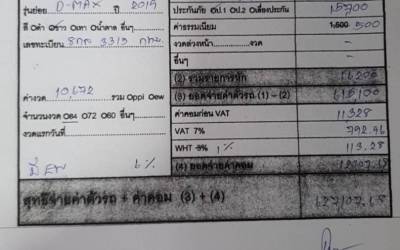 รุ่นย่อย D-MAX ปี 2019 ประกันภัย ป.1 ป.2 คุ้มประกัน 15,700
สี ดำ ขาว เทา น้ำตาล อื่นๆ ค่าธรรมเนียม 1,500 500
เลขทะเบียน 3319 กทม. งวดล่วงหน้า งวด -
อื่นๆ -
(2) รวมรายการหัก 16,200
ค่างวด 10,672 รวม ppi ew (3) ยอดจ่ายค่าตัวรถ (1) - (2)
จำนวนงวด 84 72 60 อื่นๆ ค่าคอมก่อน VAT 11328
งวดแรกวันที่ VAT 7% 792.96
WHT 3% 1% 113.28
1% (4) ยอดจ่ายค่าคอม
สุทธิจ่ายค่าตัวรถ + ค่าคอม (3) + (4)